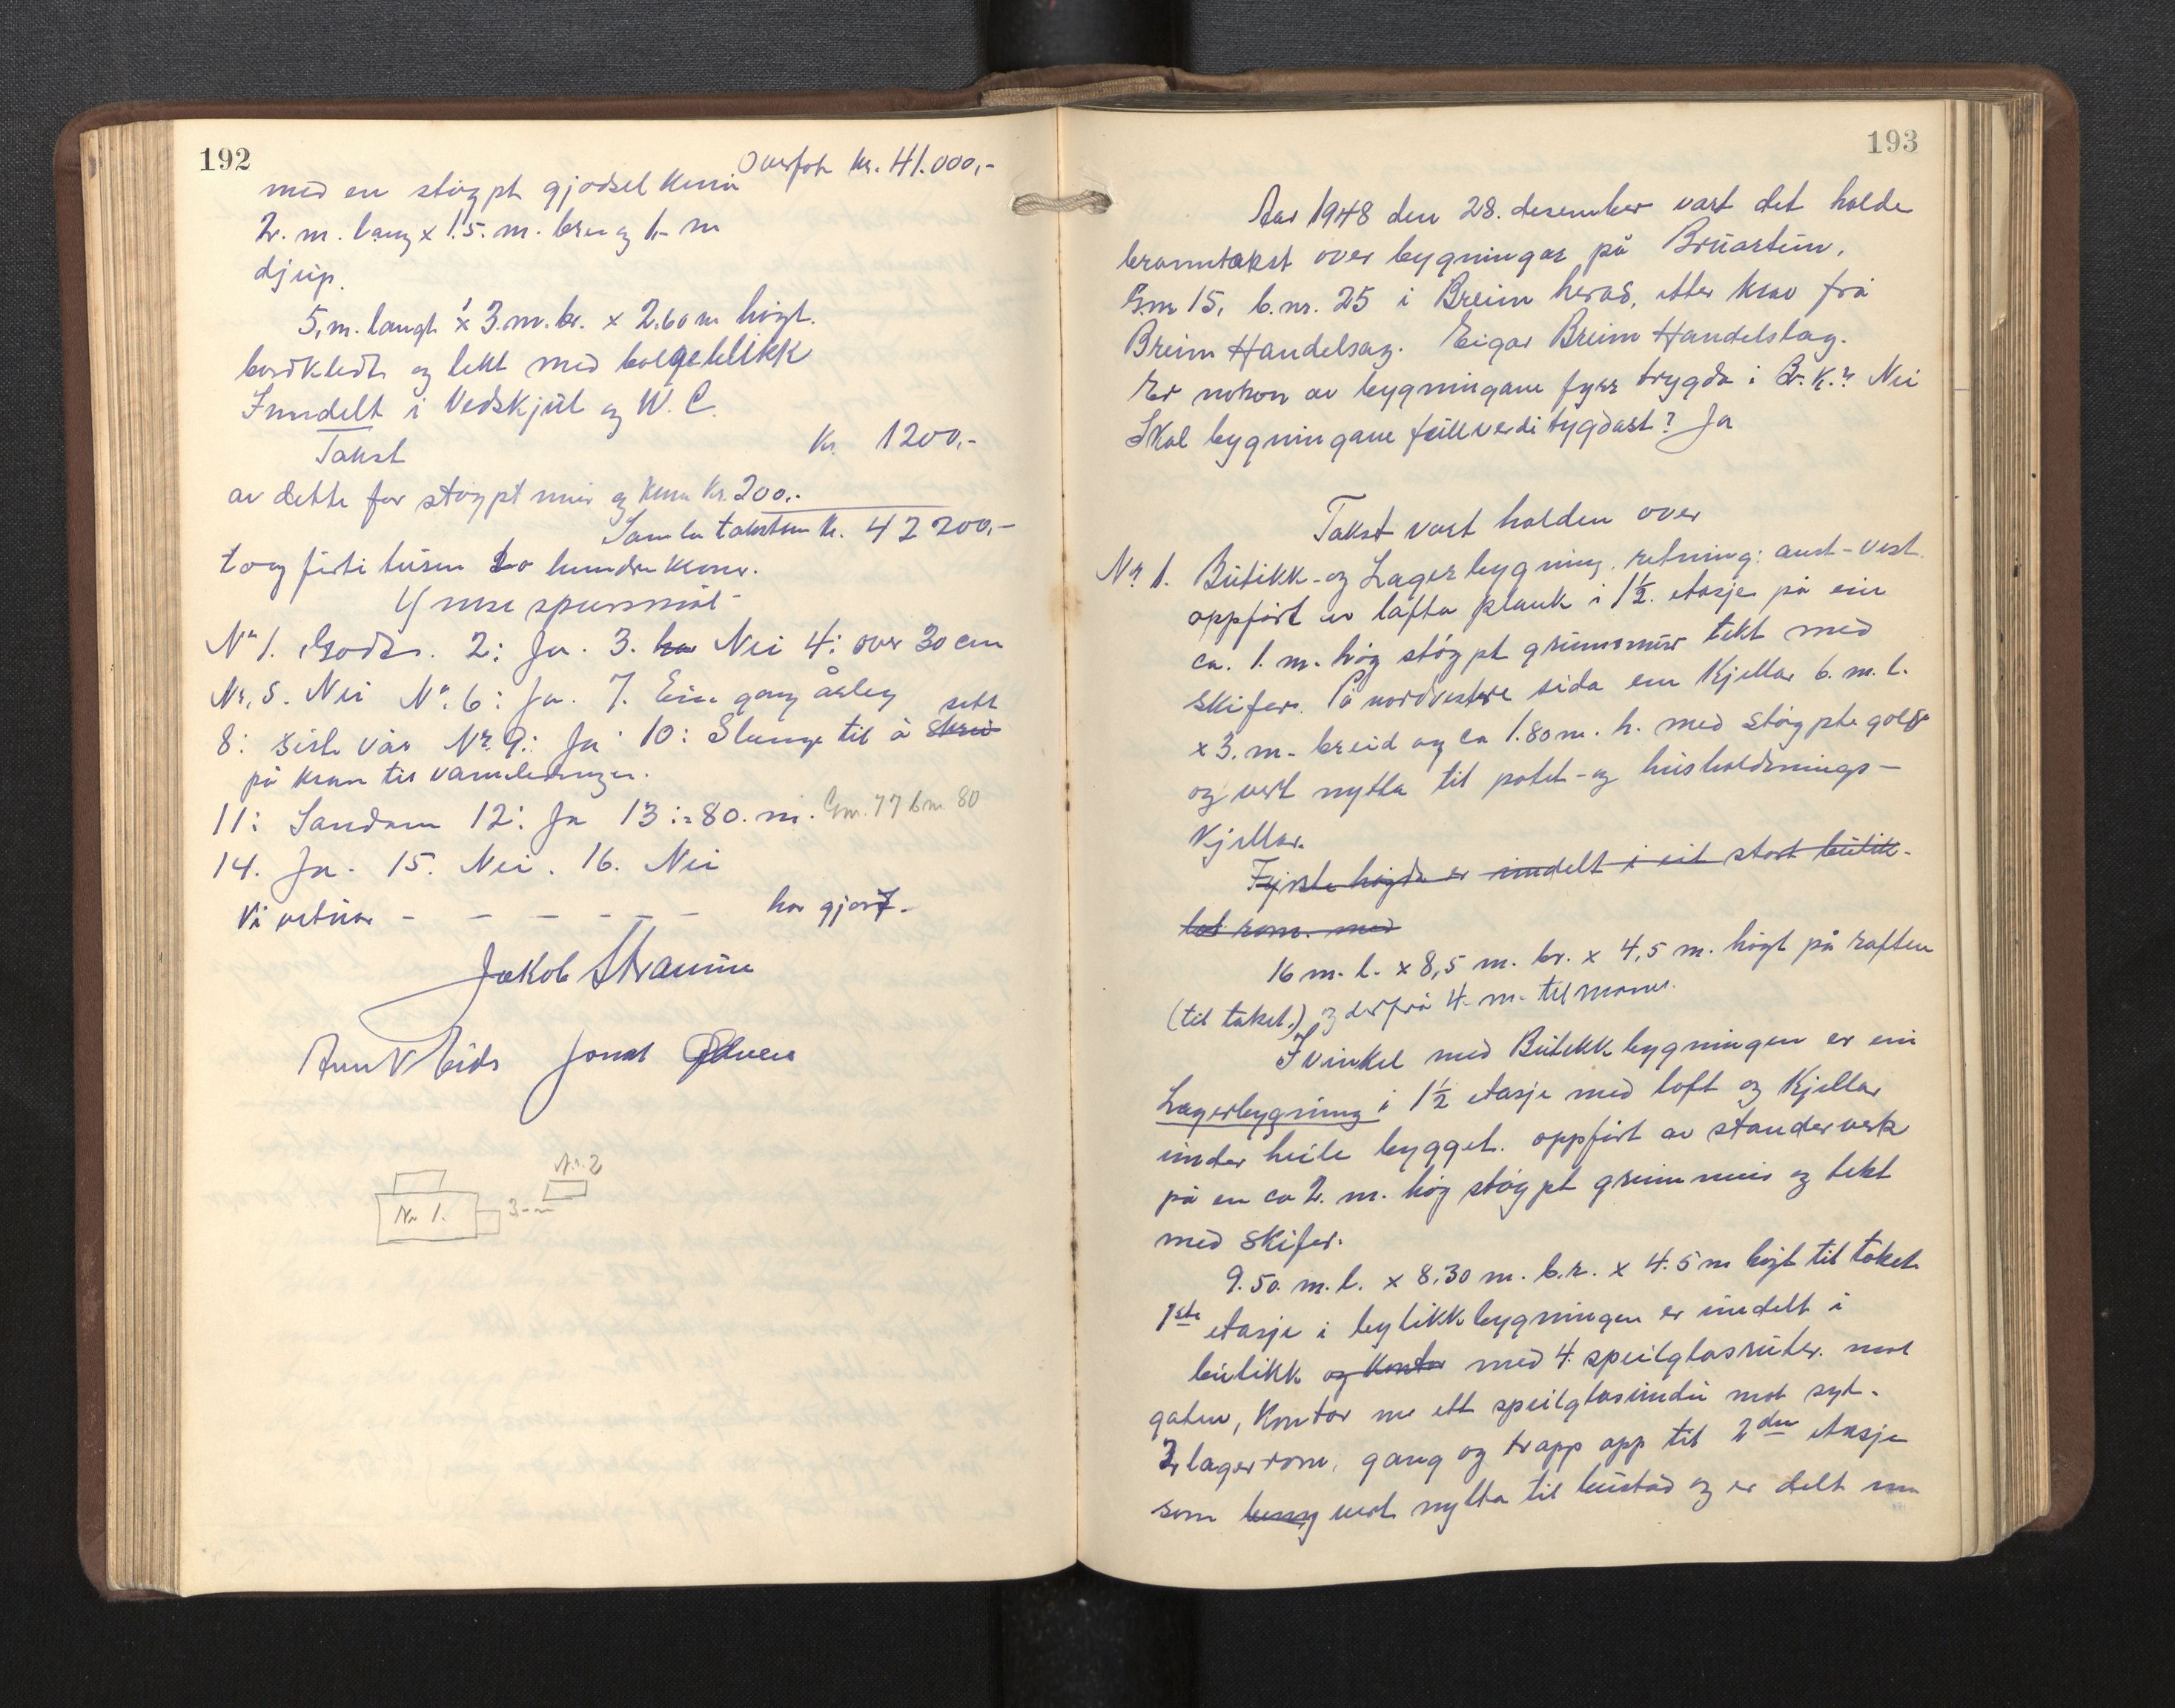 192
Overfört kr. 41.000,-
med en støypt gjødsel kum
2. m. lang x 1.5. m. brei og 1,- m
djup.
5, m. langt x 3. m. br. x 2.60 m høgt.
bordkledt og tekt med bølgeblikk
Inndelt i Vedskjul og W. C.
Takst kr. 1200,-
av dette for støypt mur og kum kr. 200,-
Samla taksten kr. 42200,-
toog førti tusen to hundre kroner.
Ymse spursmål
Nr 1. Godt. 2: Ja. 3. Nei 4: over 30 cm
Nr. 5. Nei Nr. 6: Ja. 7. Ein gang årleg
8: siste vår Nr. 9: Ja 10: Slange til å skru sett
på kran til vannledningen.
11: Sandane 12: Ja 13: = 80. m. Gnr. 77 bnr 80
14. Ja. 15. Nei. 16. Nei
Vi vitnar - - - - - - har gjort-
Jakob Straume
Eide Jonas
Nr. 2
Nr 1. 3-m
193
Aar 1948 den 28. desember vart det halde
branntakst over bygningar på Bruartun,
Gnr 15, b.nr. 25 i Breim herad, etter krav frå
Breim Handelsag. Eigar Breim Handelslag.
Er nokon av bygningane fyrr trygda i Br.K.? Nei
Skal bygningane fullverditygdast? Ja
Takst vart halden over
Nr 1. Butikk- og Lagerbygning, retning: aust-vest
oppført av lafta plank i 1½ etasje på ein
ca. 1. m. høg støypt grunnmur tekt med
skifer. På nordvestre sida ein Kjellar 6. m. l.
x 3. m. breid og ca 1.80 m. h. med støypte golv
og vert nytta til potet- og husholdnings-
Kjellar.
Fyrste høgda er inndelt i eit stort butik-
rom. med
16 m. l. x 8,5 m. br. x 4,5 m. høgt på raften
(til taket.) og derfrå 4. m. til mønet.
I vinkel med Butikkbygningen er ein
Lagerbygning i 1½ etasje med loft og Kjellar
under heile bygget. oppført av standerverk
på en ca 2. m. høg støypt grunnmur og tekt
med skifer.
9.50. m. l. x 8.30 m. b.r. x 4.5 m høgt til taket
1ste etasje i bytikkbygningen er inndelt i
butikk og Kontor med 4. speilglasruter. mot
gaten, Kontor me ett speilglasvindu mot syd.
2 lagerrom, gang og trapp opp til 2den etasje
som vert nytta til bustad og er delt inn